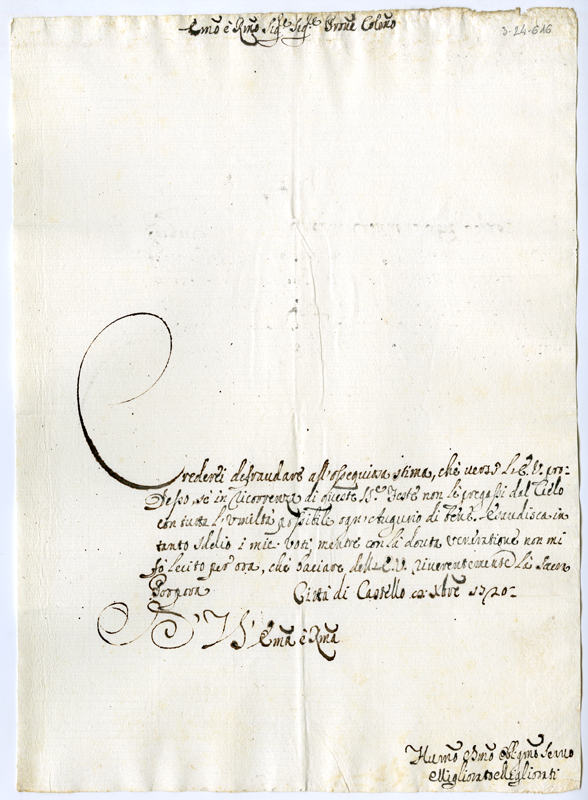 Emo è Rmo Sigre Sigre Prone Colmo
3-24-616
Crederei defraudare all'ossequiosa stima, che verso L'E.V. pro-
fesso, se in ricorrenza di queste Ste Feste non li pregassi dal Cielo
con tutta l'umiltà possibile ogn'Augurio di bene. Esaudisca in
tanto Iddio i miei voti, mentre con la dovuta veneratione non mi
fò lecito per ora, che baciare dell'E.V. riverentemente la Sacra
Porpora Città di Castello Xbre 1720-
D' V. Ema è Rma
Humo Dmo Obligmo Servo
Migliorato Migliorati